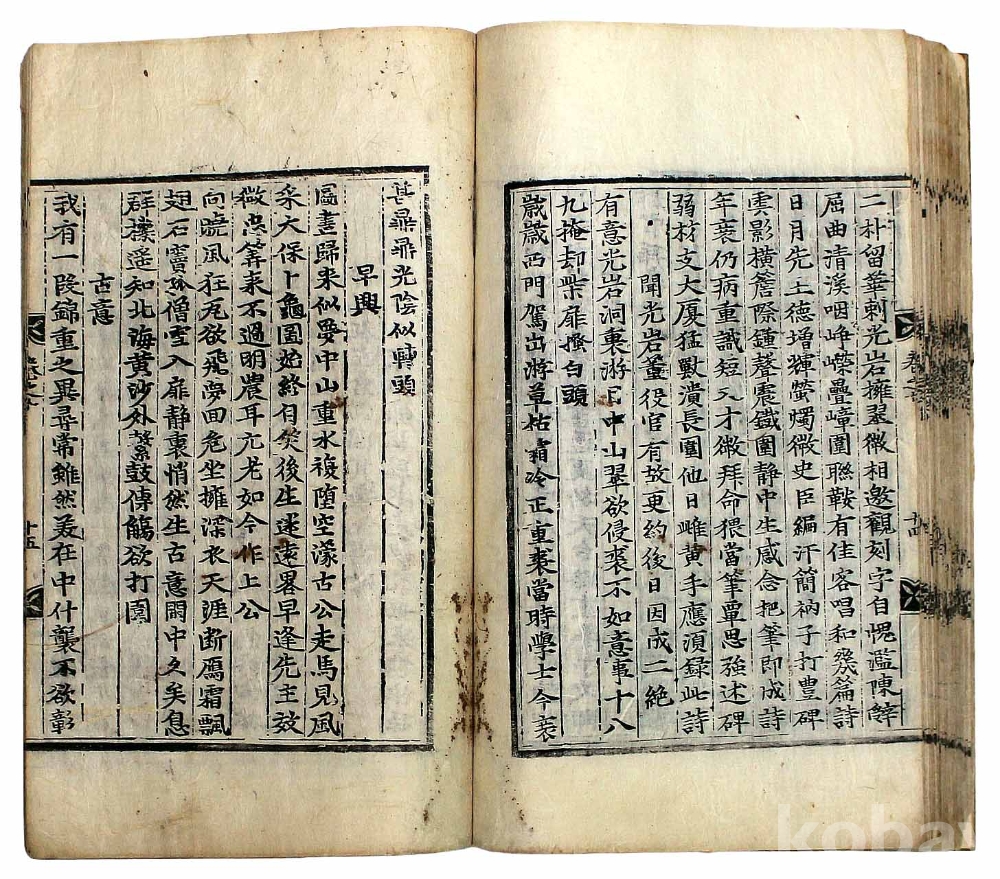 二朴留華刺光岩擁翠微相邀觀刻字自愧濫陳辭
屈曲清溪咽崢嶸疊嶂圍聯鞍有佳客唱和幾篇詩
日月先王德增輝螢燭微史臣編汗簡衲子打豊碑
雲影橫簷際鍾聲震鐵圍静中生感念把筆即成詩
年衰仍病重識短又才微拜命猥當筆覃思強述碑
弱材支大厦猛獸潰長圍他日雌黃手應湏録此詩
聞光岩董役官有故更約後日因成二絶
有意光岩洞裏游 中山翠欲侵裘不如意事十八
九掩却柴扉搔白頭
歳歳西門駕出游 祐霜冷正重裘當時學士今衰
甚鼎鼎光陰似轉頭
早興
圖畫歸來似夢中山重水複墮空濛古公走馬見風
采大保卜龜圖始終自矣後生迷遠畧早逢先主效
微忠筭来不過明農耳亢老如今作上公
向曉風狂瓦欲飛夢回危坐擁深衣天涯断鴈霜飄
翅石竇 僧雪入扉静裏悄然生古意閙中久矣息
群 遥知北海黃沙外 鼓傳觴欲打圍
古意
我有一段錦重之異尋常雖然 在中什襲不欲彰
卷之
十四
卷之
十五
kobay